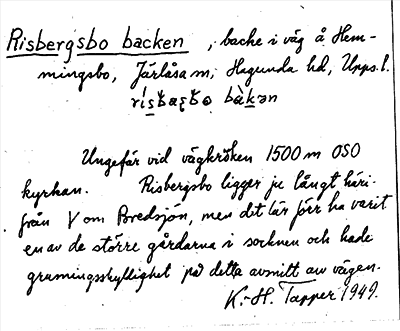 Risbergsbo backen, backe i väg å Hem-
mingsbo, Järlåsa sn, Hagunda hd, Upps. l.
bàkən
Ungefär vid vägkröken 1500 m OSO
kyrkan. Risbergsbo ligger ju långt häri-
från V om Bredsjön, men det lär förr ha varit
en av de större gårdarna i socknen och hade
grusningsskyldighet på detta avsnitt av vägen.
K.-H. Tapper 1949.